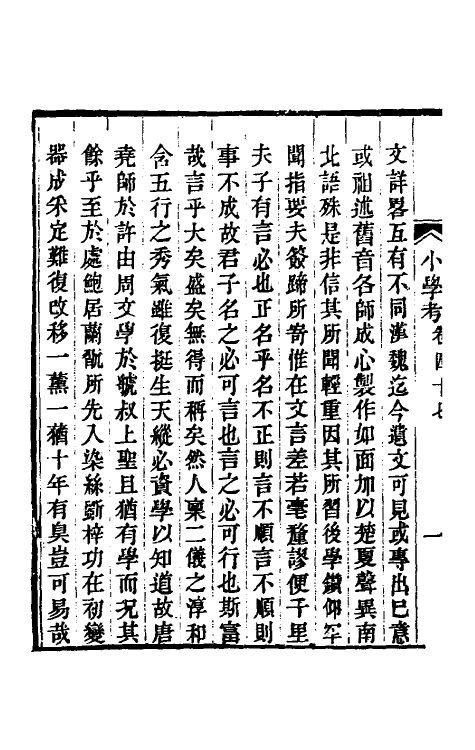 小學考卷四十七 一
文詳畧互有不同漢魏迄今遺文可見或專出已意
或祖述舊音各師成心製作如面加以楚夏聲異南
北語殊是非信其所聞輕重因其所習後學鑽仰罕
聞指要夫筌蹄所寄惟在文言差若毫釐謬便千里
夫子有言必也正名乎名不正則言不順言不順則
事不成故君子名之必可言也言之必可行也斯富
哉言乎大矣盛矣無得而稱矣然人稟二儀之淳和
含五行之秀氣雖復挺生天縱必資學以知道故唐
堯師於許由周文學於虢叔上聖且猶有學而況其
餘乎至於處鮑居蘭翫所先入染絲斲梓功在初變
器成采定難復改移一薰一蕕十年有臭豈可易哉